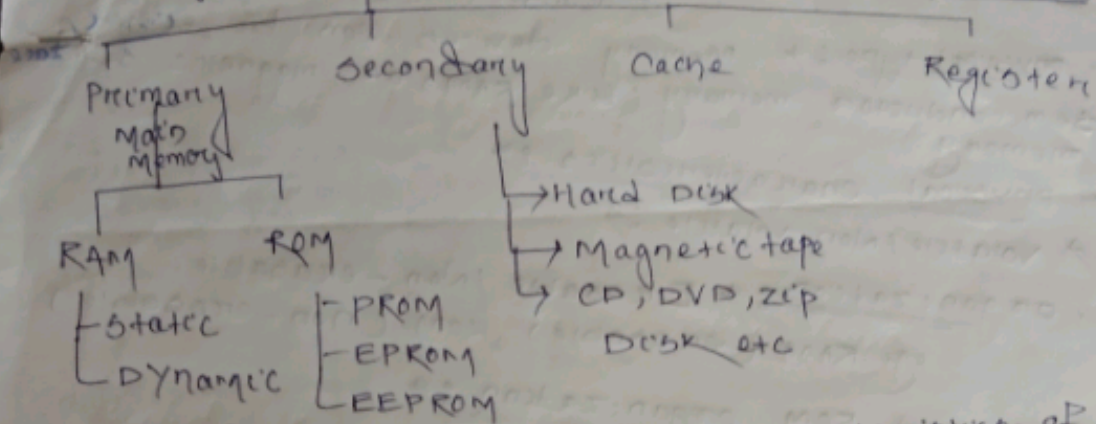 Primary
Main
Memory
Secondary
Cache
Register
RAM
Static
Dynamic
ROM
PROM
EPROM
EEPROM
Hard Disk
Magnetic tape
CD, DVD, Zip
Disk etc
of